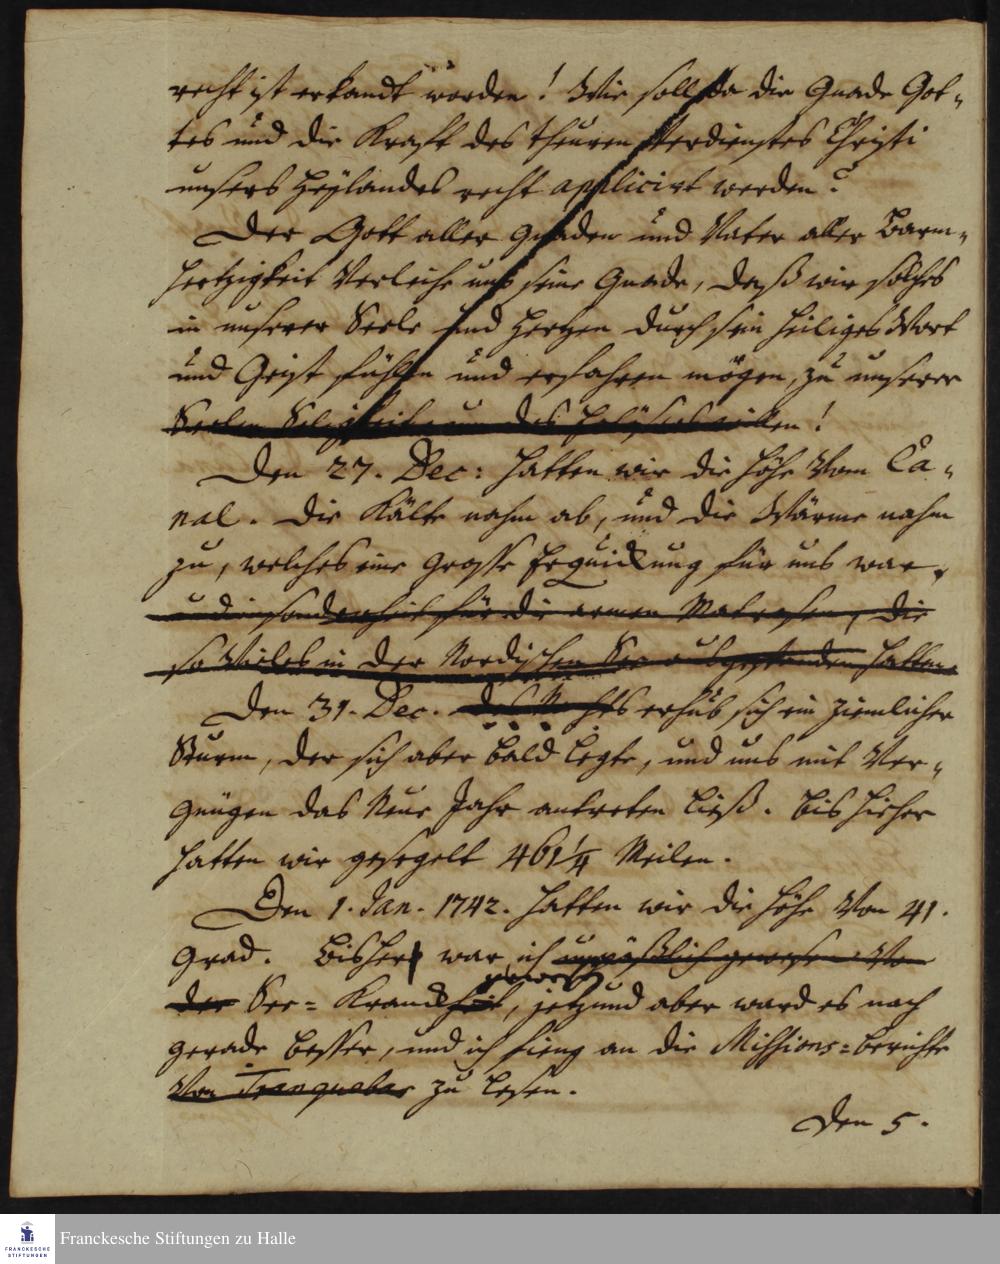 recht ist erkandt worden! Wie soll da die Gnade Got-
tes und die Krafft des theuren Verdienstes Christi
unsers Heylandes recht applicirt werden?
Der Gott aller Gnaden und Vater aller Barm-
hertzigkeit Verleihe uns seine Gnade, daß wir solches
in unserer Seele und Hertzen durch sein heiliges Wort
und Geist fühlen und erfahren mögen, zu unserer
Seelen Seligkeit um des willen!
Den 27. Dec: hatten wir die Höhe Vom Ca-
nal. Die Kälte nahm ab, und die Wärme nahm
zu, welches eine grosse Erquickung für uns war,
und insonderheit für die armen Matrosen, die
so Vieles in der Nordischen See ausgestanden hatten.
Den 31. Dec. des Nachts erhub sich ein ziemlicher
Sturm, der sich aber bald legte, und uns mit Ver-
gnügen das Neue Jahr antreten ließ. Bis hieher
hatten wir gesegelt 461 1/4 Meilen.
Den 1. Jan. 1742. hatten wir die Höhe Von 41.
Grad. Bisher war ich unpäßlich gewesen Von
der See-Kranckheit, jetzund aber ward es nach
gerade besser, und ich fieng an die Missions-Berichte
Von Tranquebar zu lesen.
Den 5.
FRANCKESCHE
STIFTUNGEN
Franckesche Stiftungen zu Halle